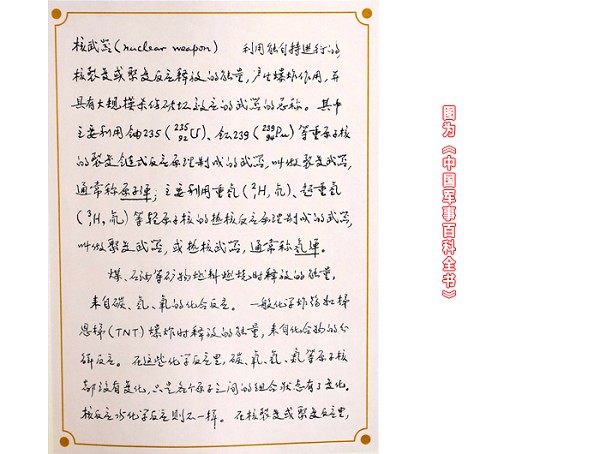 核武器(nuclear weapon) 利用能自持进行的
核裂变或聚变反应释放的能量,产生爆炸作用,并
具有大规模杀伤破坏效应的武器的总称。其中
主要利用铀235(²³⁵₉₂U)、钚239(²³⁹₉₄Pu)等重原子核
的裂变链式反应原理制成的武器,叫做裂变武器,
通常称原子弹;主要利用重氢(²₁H,氘)、超重氢
(³₁H,氚)等轻原子核的热核反应原理制成的武器,
叫做聚变武器,或热核武器,通常称氢弹。
煤、石油等矿物燃料燃烧时释放的能量,
来自碳、氢、氧的化合反应。一般化学炸药如梯
恩梯(TNT)爆炸时释放的能量,来自化合物的分
解反应。在这些化学反应里,碳、氢、氧、氮等原子核
都没有变化,只是各个原子之间的组合状态有了变化。
核反应与化学反应则不一样。在核裂变或聚变反应里,
图为《中国军事百科全书》